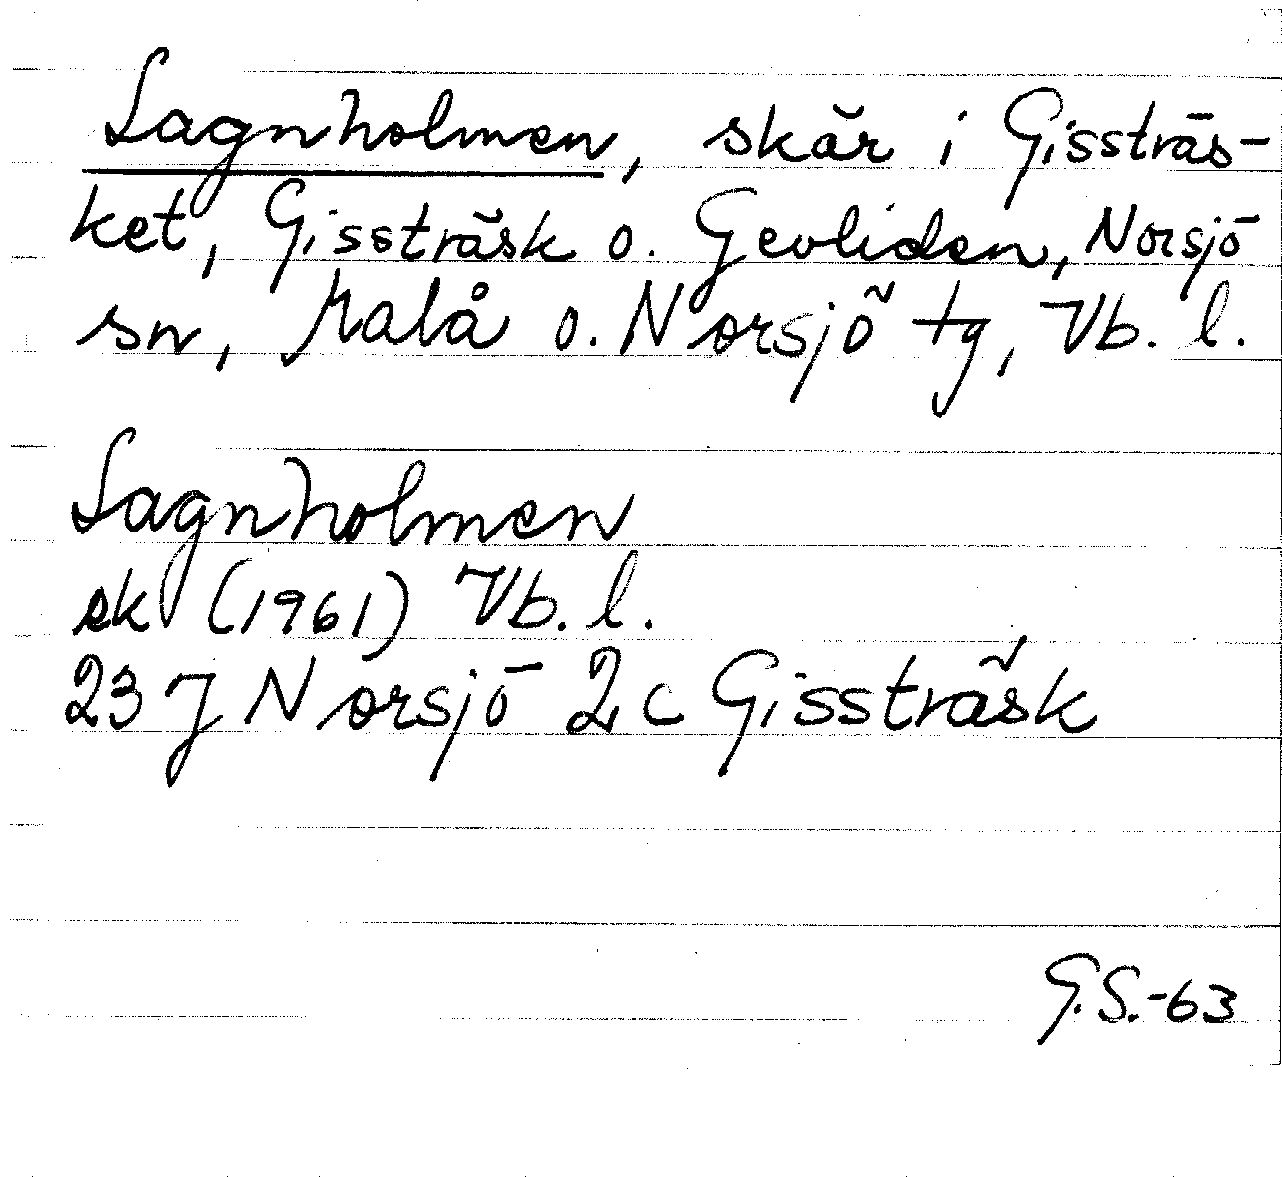 Lagnholmen, skär i Gissträs-
ket, Gissträsk o. Gevliden, Norsjö
sn, Malå o. Norsjö tg, Vb. l.
Lagnholmen
ek (1961) Vb. l.
23 J Norsjö 2 c Gissträsk
G.S.-63